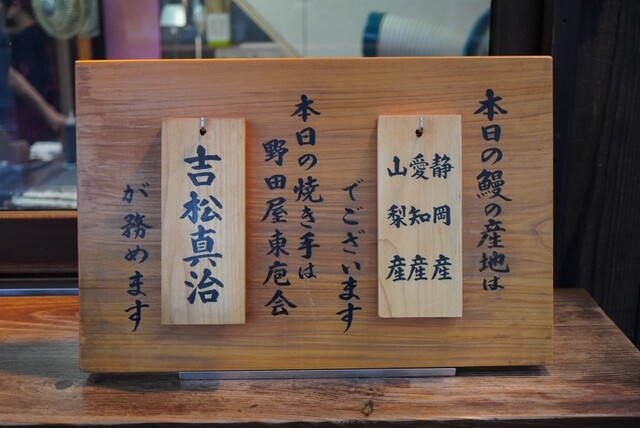 本日の鰻の産地は
静岡産
愛知産
山梨産
でございます
本日の焼き手は
野田屋東庖会
吉松真治
が務めます